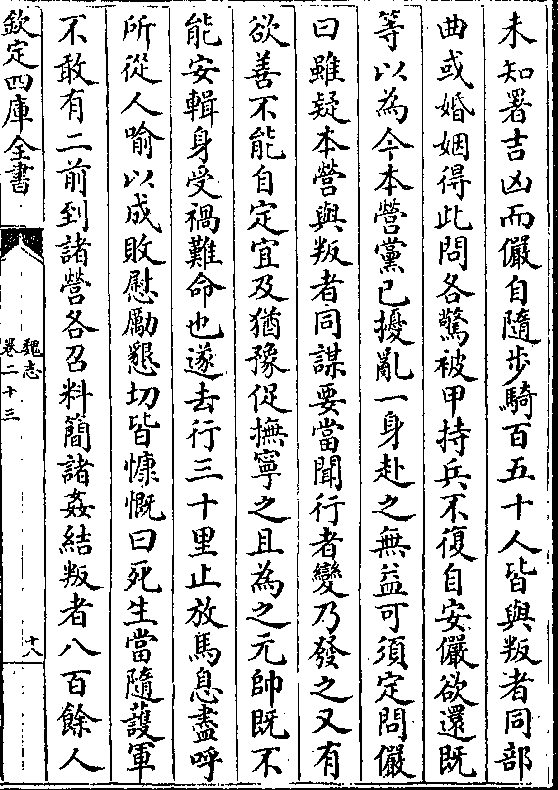 未知署吉凶而儼自隨步騎百五十人皆與叛者同部
曲或婚姻得此問各驚被甲持兵不復自安儼欲還既
等以為今本營黨已擾亂一身赴之無益可須定問儼
曰雖疑本營與叛者同謀要當聞行者變乃發之又有
欲善不能自定宜及猶豫促撫寧之且為之元帥既不
能安輯身受禍難命也遂去行三十里止放馬息盡呼
所從人喻以成敗慰勵懇切皆慷慨曰死生當隨護軍
不敢有二前到諸營各召料簡諸姦結叛者八百餘人
欽定四庫全書
魏志
卷二十三
十八